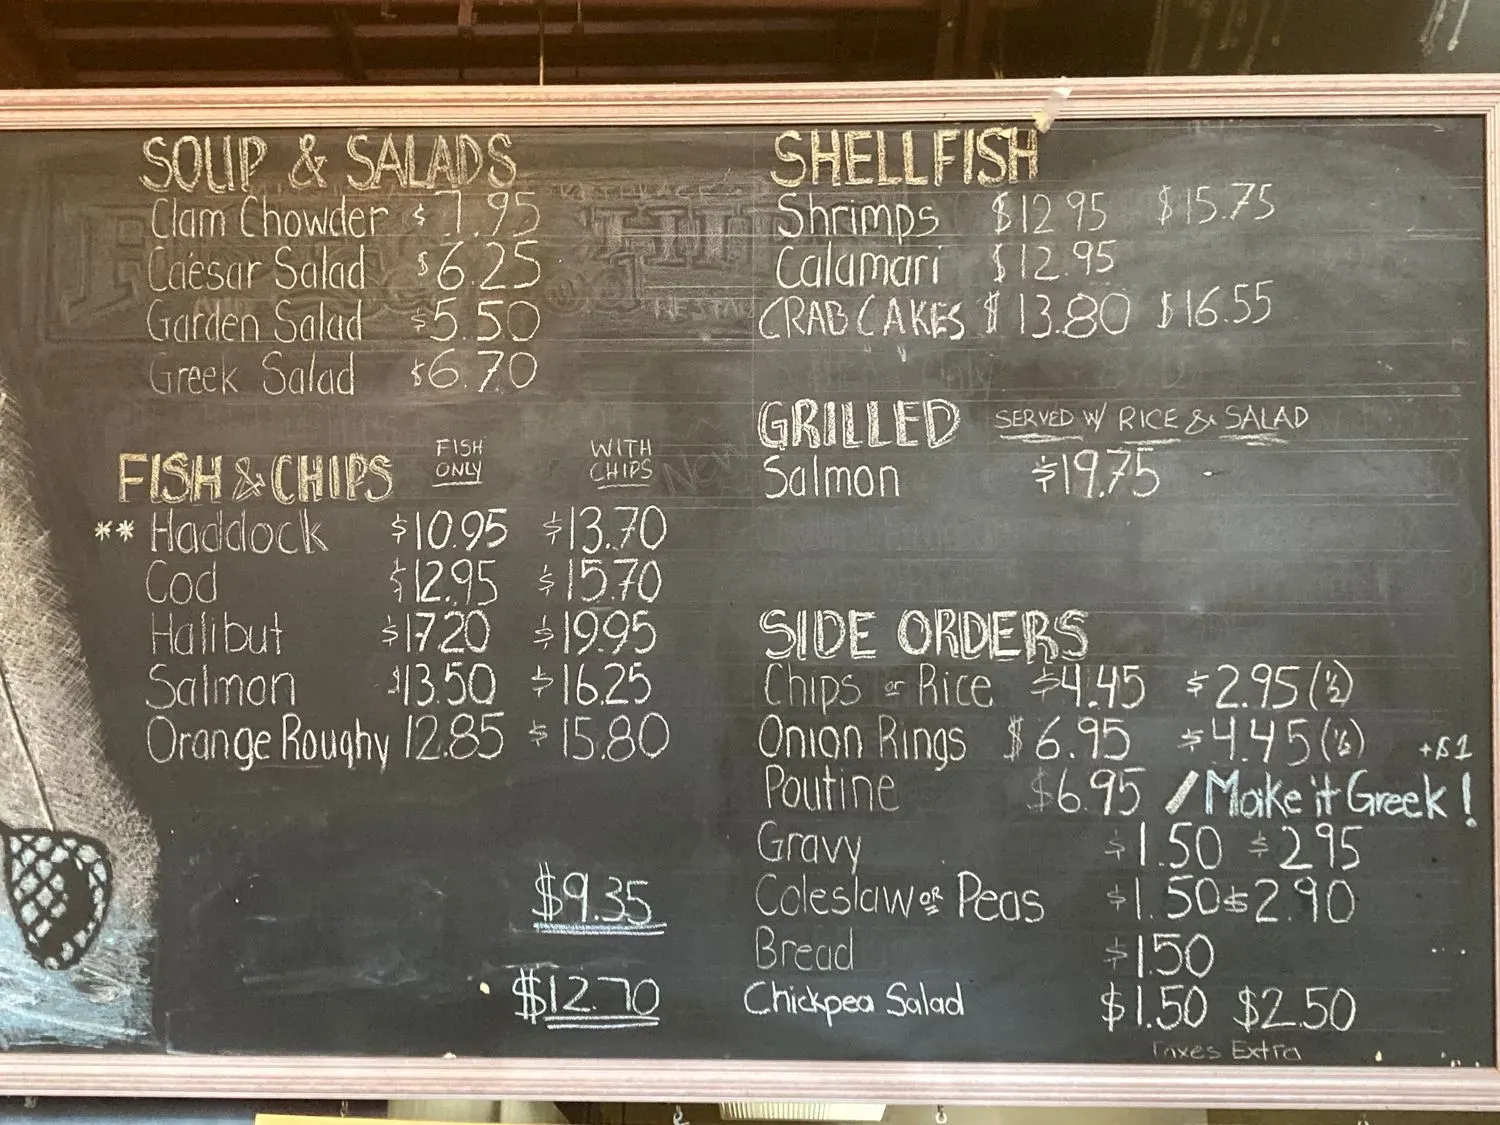 SOUP & SALADS
Clam Chowder $7.95
Caesar Salad $6.25
Garden Salad $5.50
Greek Salad $6.70
FISH & CHIPS FISH ONLY WITH CHIPS
** Haddock $10.95 $13.70
Cod $12.95 $15.70
Halibut $17.20 $19.95
Salmon $13.50 $16.25
Orange Roughy 12.85 $15.80
$9.35
$12.70
SHELLFISH
Shrimps $12.95 $15.75
Calamari $12.95
CRAB CAKES $13.80 $16.55
GRILLED SERVED W/ RICE & SALAD
Salmon $19.75
SIDE ORDERS
Chips or Rice $4.45 $2.95 (½)
Onion Rings $6.95 $4.45 (½) +$1
Poutine $6.95 / Make it Greek!
Gravy $1.50 $2.95
Coleslaw OR Peas $1.50 $2.90
Bread $1.50
Chickpea Salad $1.50 $2.50
Taxes Extra